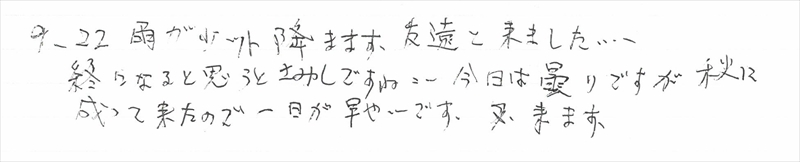 9_22 雨が少ット降ります、友遠と来ました……
終になると思うとさみしですね… 今日は曇りですが秋に
成って来たので一日が早や…です、又、来ます、